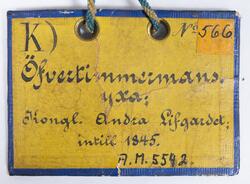 K) No 566
Öfvertimmermans-
yxa;
Kongl. Andra Lifgardet,
intill 1845.
A.M. 5542.